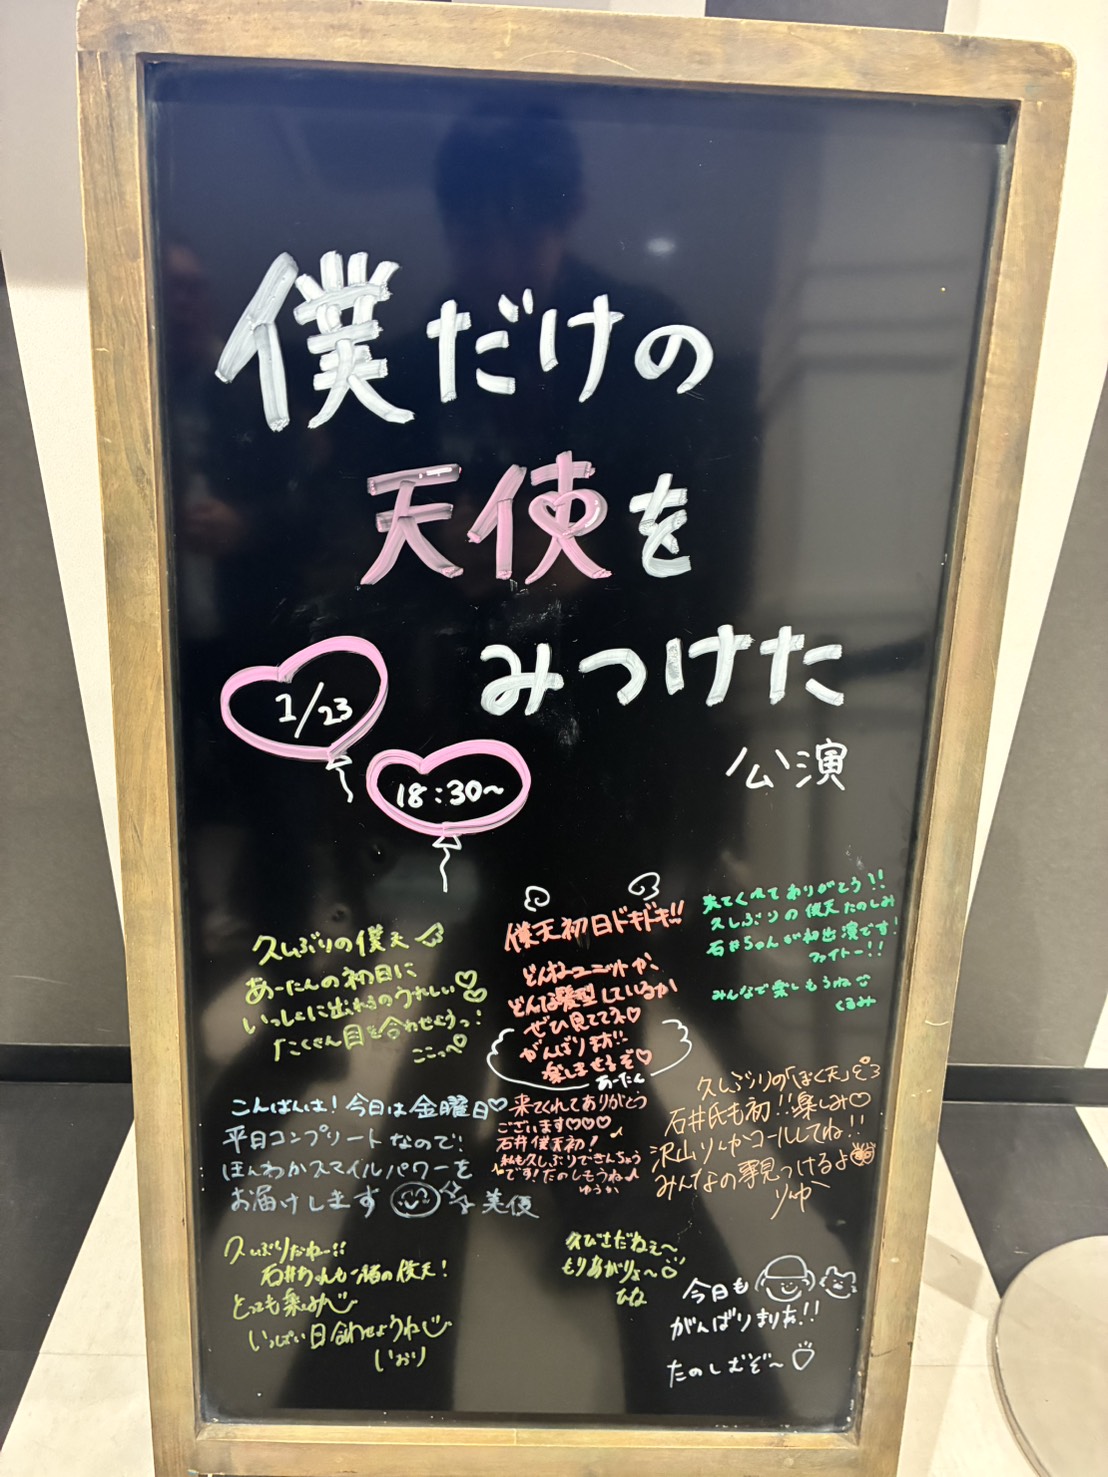 僕だけの
天使を
みつけた
公演
1/23
18:30〜
久しぶりの僕天
あーたんの初日に
いっしょに出れるのうれしい♡
たくさん目を合わせようっ!
ここっぺ
僕天初日ドキドキ!!
どんなユニットか、
どんな髪型しているか
ぜひ見ててネ♡
がんばります!!
楽しませるぞ♡
あーたん
来てくれてありがとう!!
久しぶりの僕天たのしみ
石井ちゃんが初出演です!
ファイトー!!
みんなで楽しもうね
くるみ
こんばんは!今日は金曜日♡
平日コンプリートなので!
ほんわかスマイルパワーを
お届けします
美優
来てくれてありがとう
ございます♡♡♡
石井僕天初!
私も久しぶりできんちょう
です!たのしもうね♪
ゆうか
久しぶりの「ぼく天」
石井氏も初!!楽しみ♡
沢山りんかコールしてね!!
みんなの事見つけるよ
久しぶりだねー!!
石井ちゃんも一緒の僕天!
とっても楽しみ
いっぱい目合わせようね
いおり
久びさだねぇ〜
もりあがりょ〜
ひな
今日も
がんばりまりあ!!
たのしむぞ〜